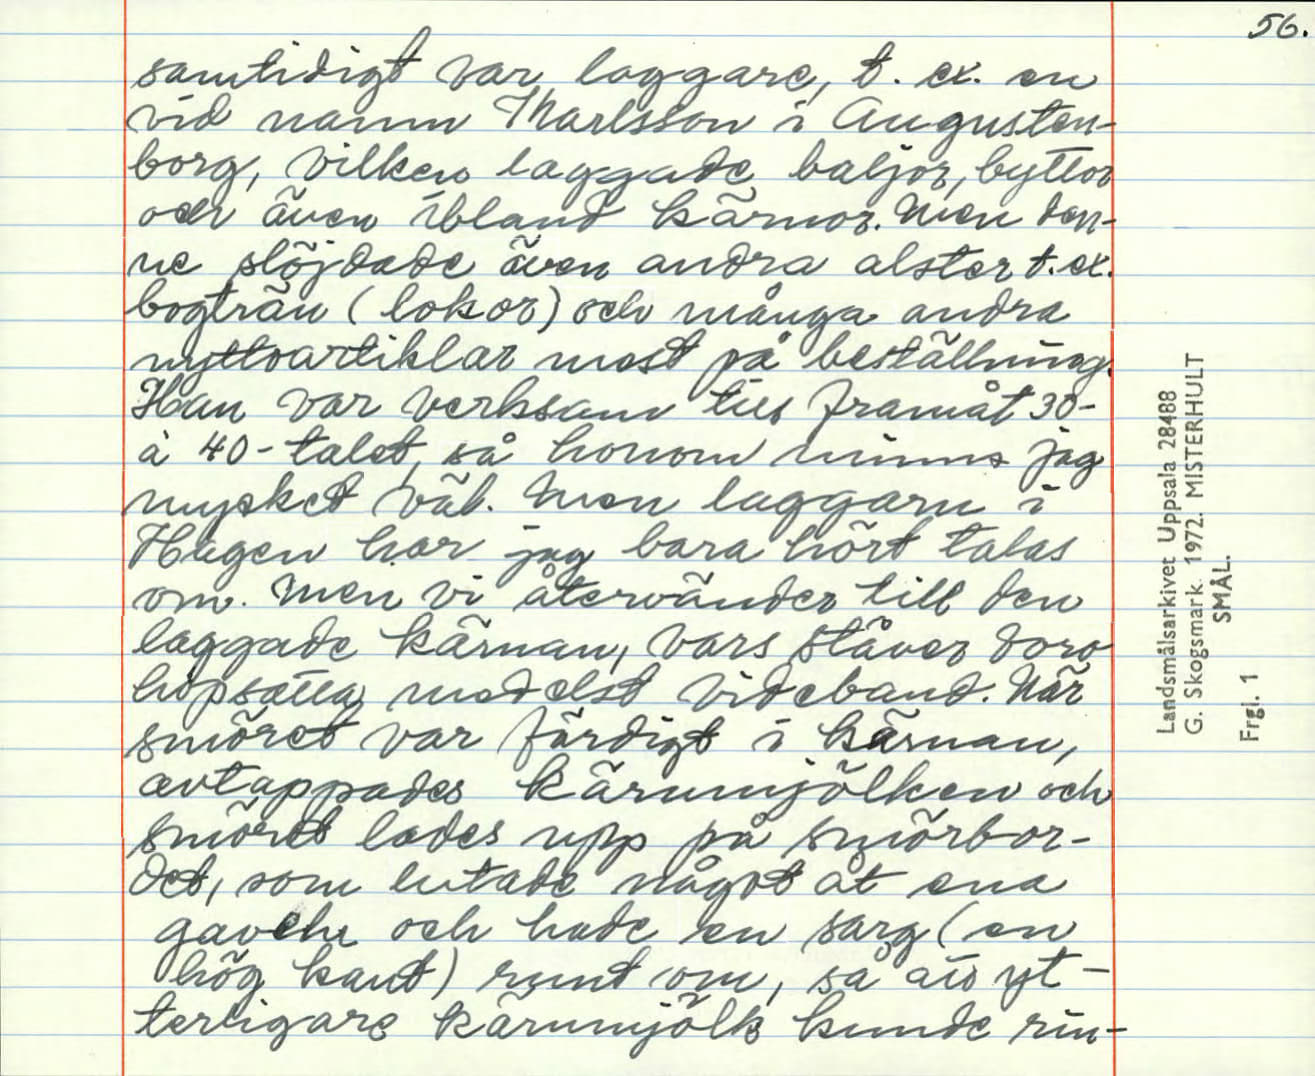 56.
samtidigt var laggare, t. ex. en
vid namn Karlsson i Augusten-
borg, vilken laggade baljor, byttor
och även ibland kärnor. Men den-
ne slöjdade även andra alster t. ex.
bogträn (lokor) och många andra
nyttoartiklar mest på beställning.
Han var verksam tills framåt 30-
à 40-talet, så honom minns jag
mycket väl. Men laggarn i
Hagen har jag bara hört talas
om. Men vi återvänder till den
laggade kärnan, vars stäver voro
hopsatta medelst videband. När
smöret var färdigt i kärnan,
avtappades kärnmjölken och
smöret lades upp på smörbor-
det, som lutade något åt ena
gaveln och hade en sarg (en
hög kant) runt om, så att yt-
terligare kärnmjölk kunde rin-
Landsmålsarkivet Uppsala 28488
G. Skogsmark. 1972. MISTERHULT
SMÅL.
Frgl. 1